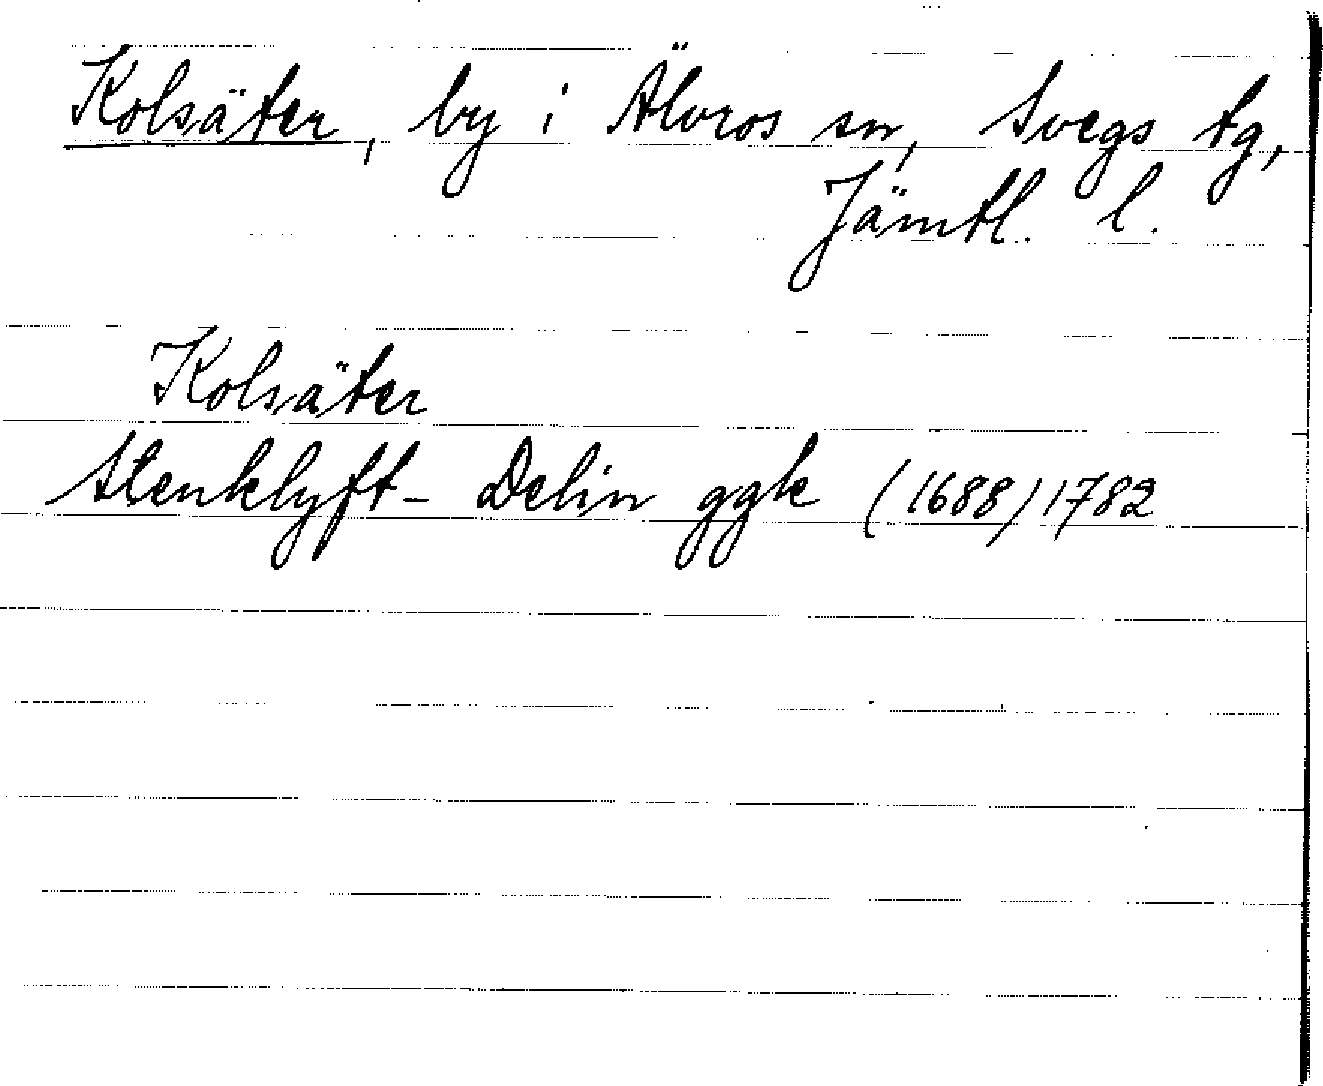 Kolsäter, by i Älvros sn, Svegs tg,
Jämtl. l.
Kolsäter
Stenklyft- Delin ggk (1688) 1782